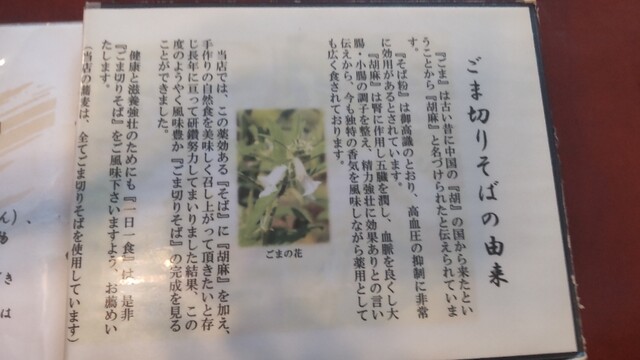 ごま切りそばの由来
『ごま』は古い昔に中国の『胡』の国から来たとい
うことから『胡麻』と名づけられたと伝えられていま
す。
『そば粉』は御高識のとおり、高血圧の抑制に非常
に効用があるとされています。
『胡麻』は腎に作用し五臓を潤し、血脈を良くし大
腸・小腸の調子を整え、精力強壮に効果ありとの言い
伝えから、今も独特の香気を風味しながら薬用として
も広く食されております。
ごまの花
当店では、この薬効ある『そば』に『胡麻』を加え、
手作りの自然食を美味しく召し上がって頂きたいと存
じ長年に亘って研鑽努力してまいりました結果、この
度のようやく風味豊か『ごま切りそば』の完成を見る
ことができました。
健康と滋養強壮のためにも『一日一食』は、是非
『ごま切りそば』をご風味下さいますよう、お薦めい
たします。
(当店の蕎麦は、全てごま切りそばを使用しています)
ん)、
き
は